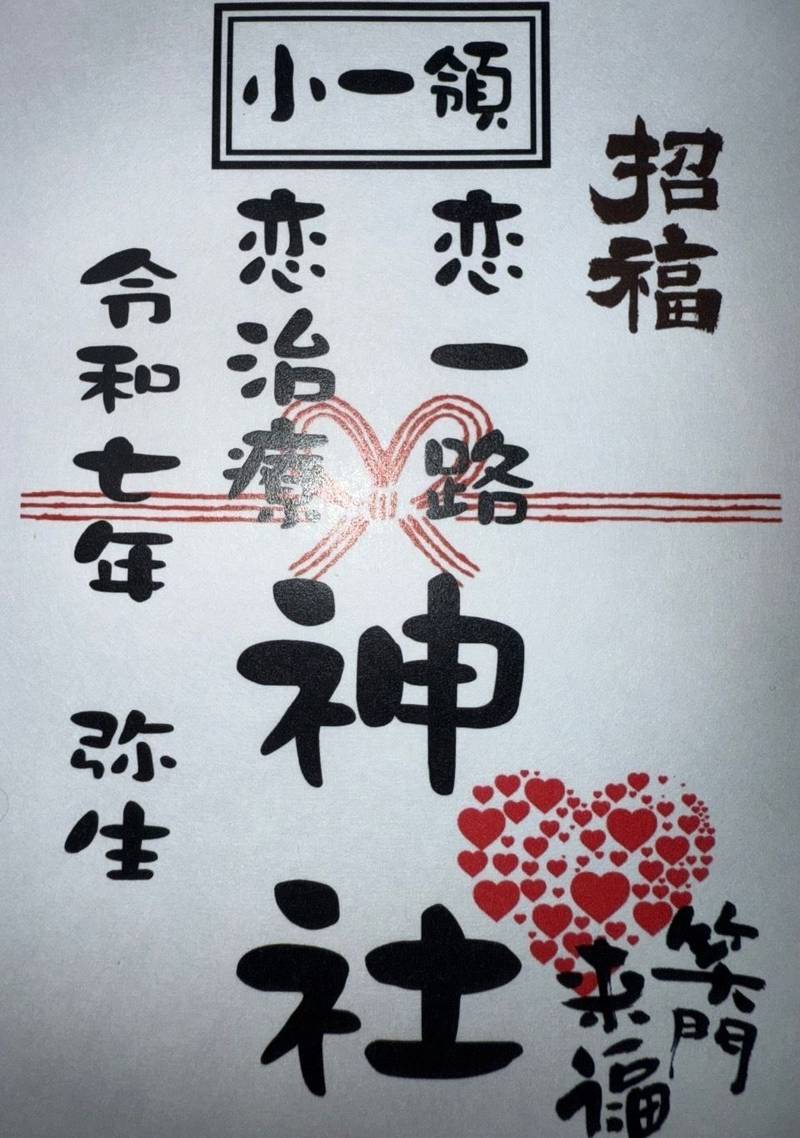 小一領
招福
恋一路
恋治療
神社
令和七年 弥生
笑門
来福